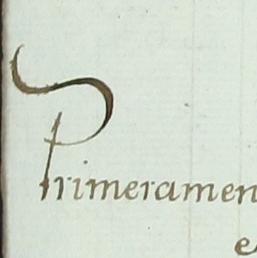 Primeramen
e